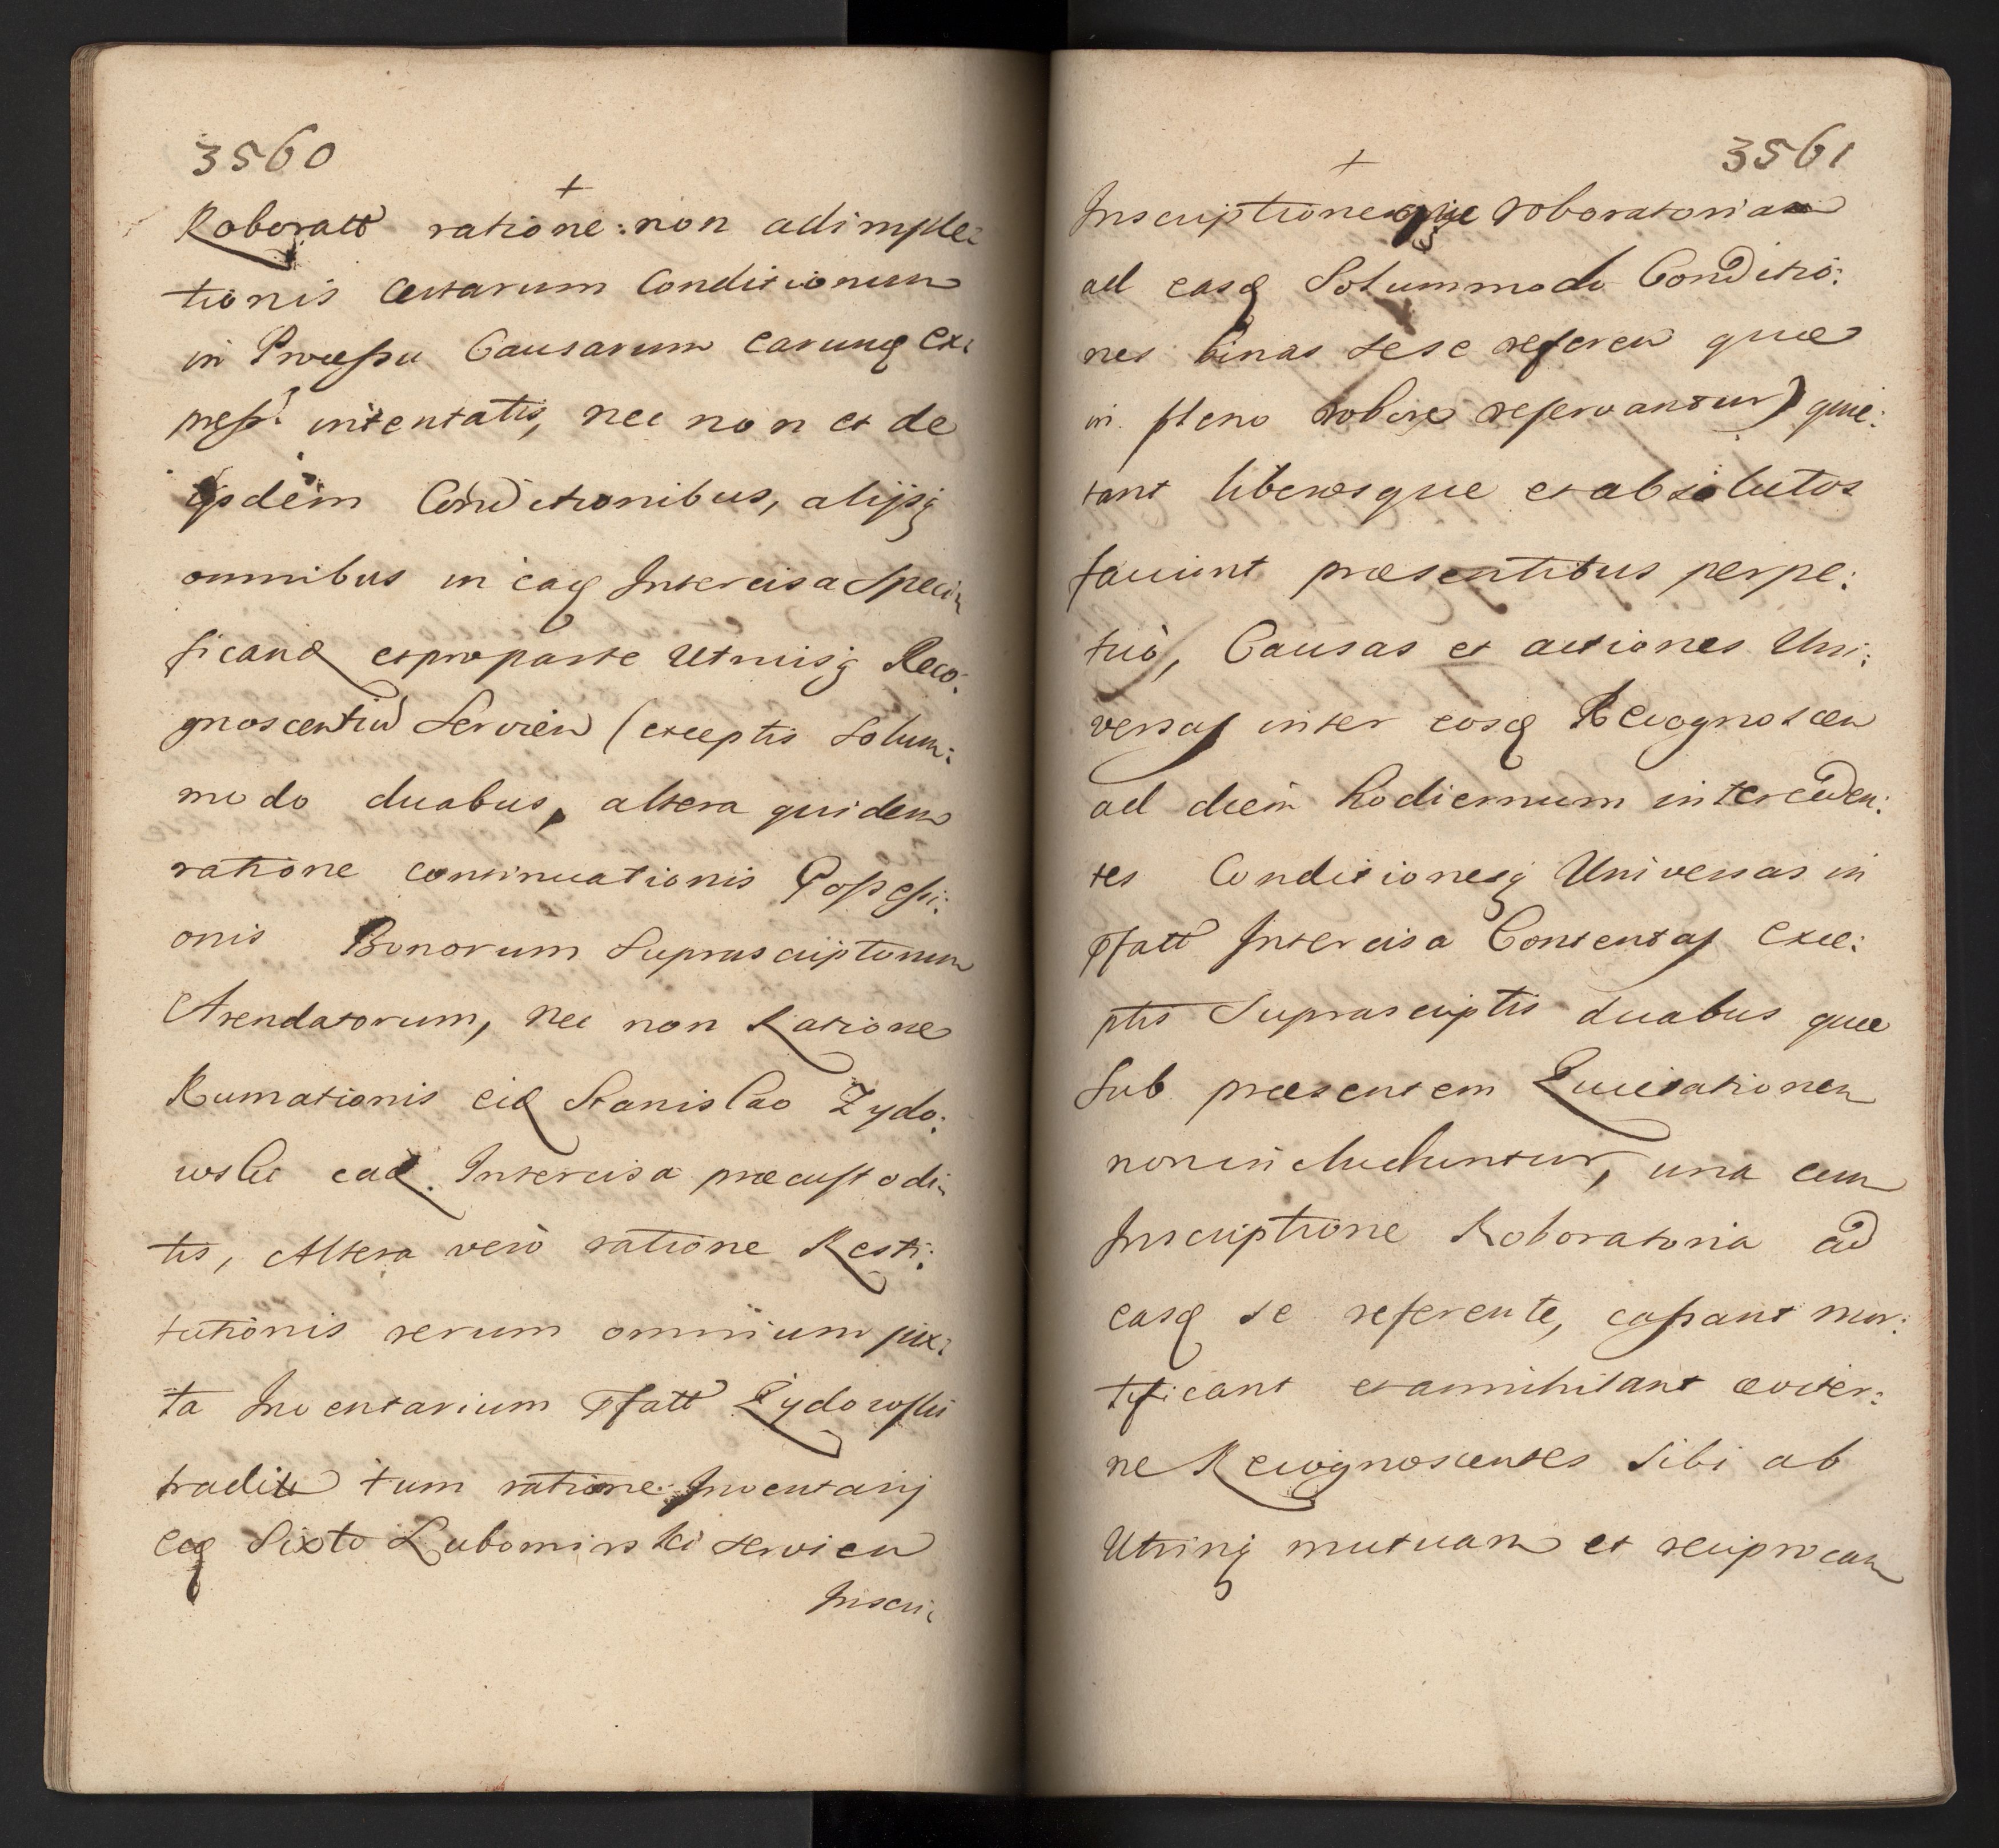 3560
+
Roboratt ratione: non adimple:
tionis certarum Conditionum
in Processu Causarum earumq ex:
press: intentatis, nec non et de
ijsdem Conditionibus, alijsq
omnibus in eaq Intercisa Speci:
ficand et pro parte Utriusq Reco:
gnoscentiu Servien (exceptis Solum:
modo duabus, altera quidem
ratione continuationis Possessi:
onis Bonorum Suprascriptorum
Arendatorum, nec non Ratione
Rumationis eid Stanislao Zydo:
wski ead. Intercisa præcustodi:
tis, Altera verò ratione Resti:
tutionis rerum omnium jux:
ta Inventarium Pfatt Zydowski
tradit tum ratione Inventarij
eq Sixto Lubomirski servien
Inscri:
3561
+
Inscriptioneque roboratoria
ad easq Solummodo Conditio:
nes binas sese referen quæ
in pleno robore reservantur) quie:
tant liberosque et absolutos
faciunt præsentibus perpe:
tuò, Causas et actiones Uni:
versas inter eosq Recognoscen
ad diem hodiernum interceden:
tes Conditionesq Universas in
Pfatt Intercisa Contentas exce:
ptis Suprascriptis duabus quæ
Sub præsentem Quietationem
non includuntur, una cum
Inscriptione Roboratoria ad
easq se referente, cassant mor:
tificant et annihilant æviter:
ne Recognoscentes Sibi ab
Utrinq mutuam et reciprocam